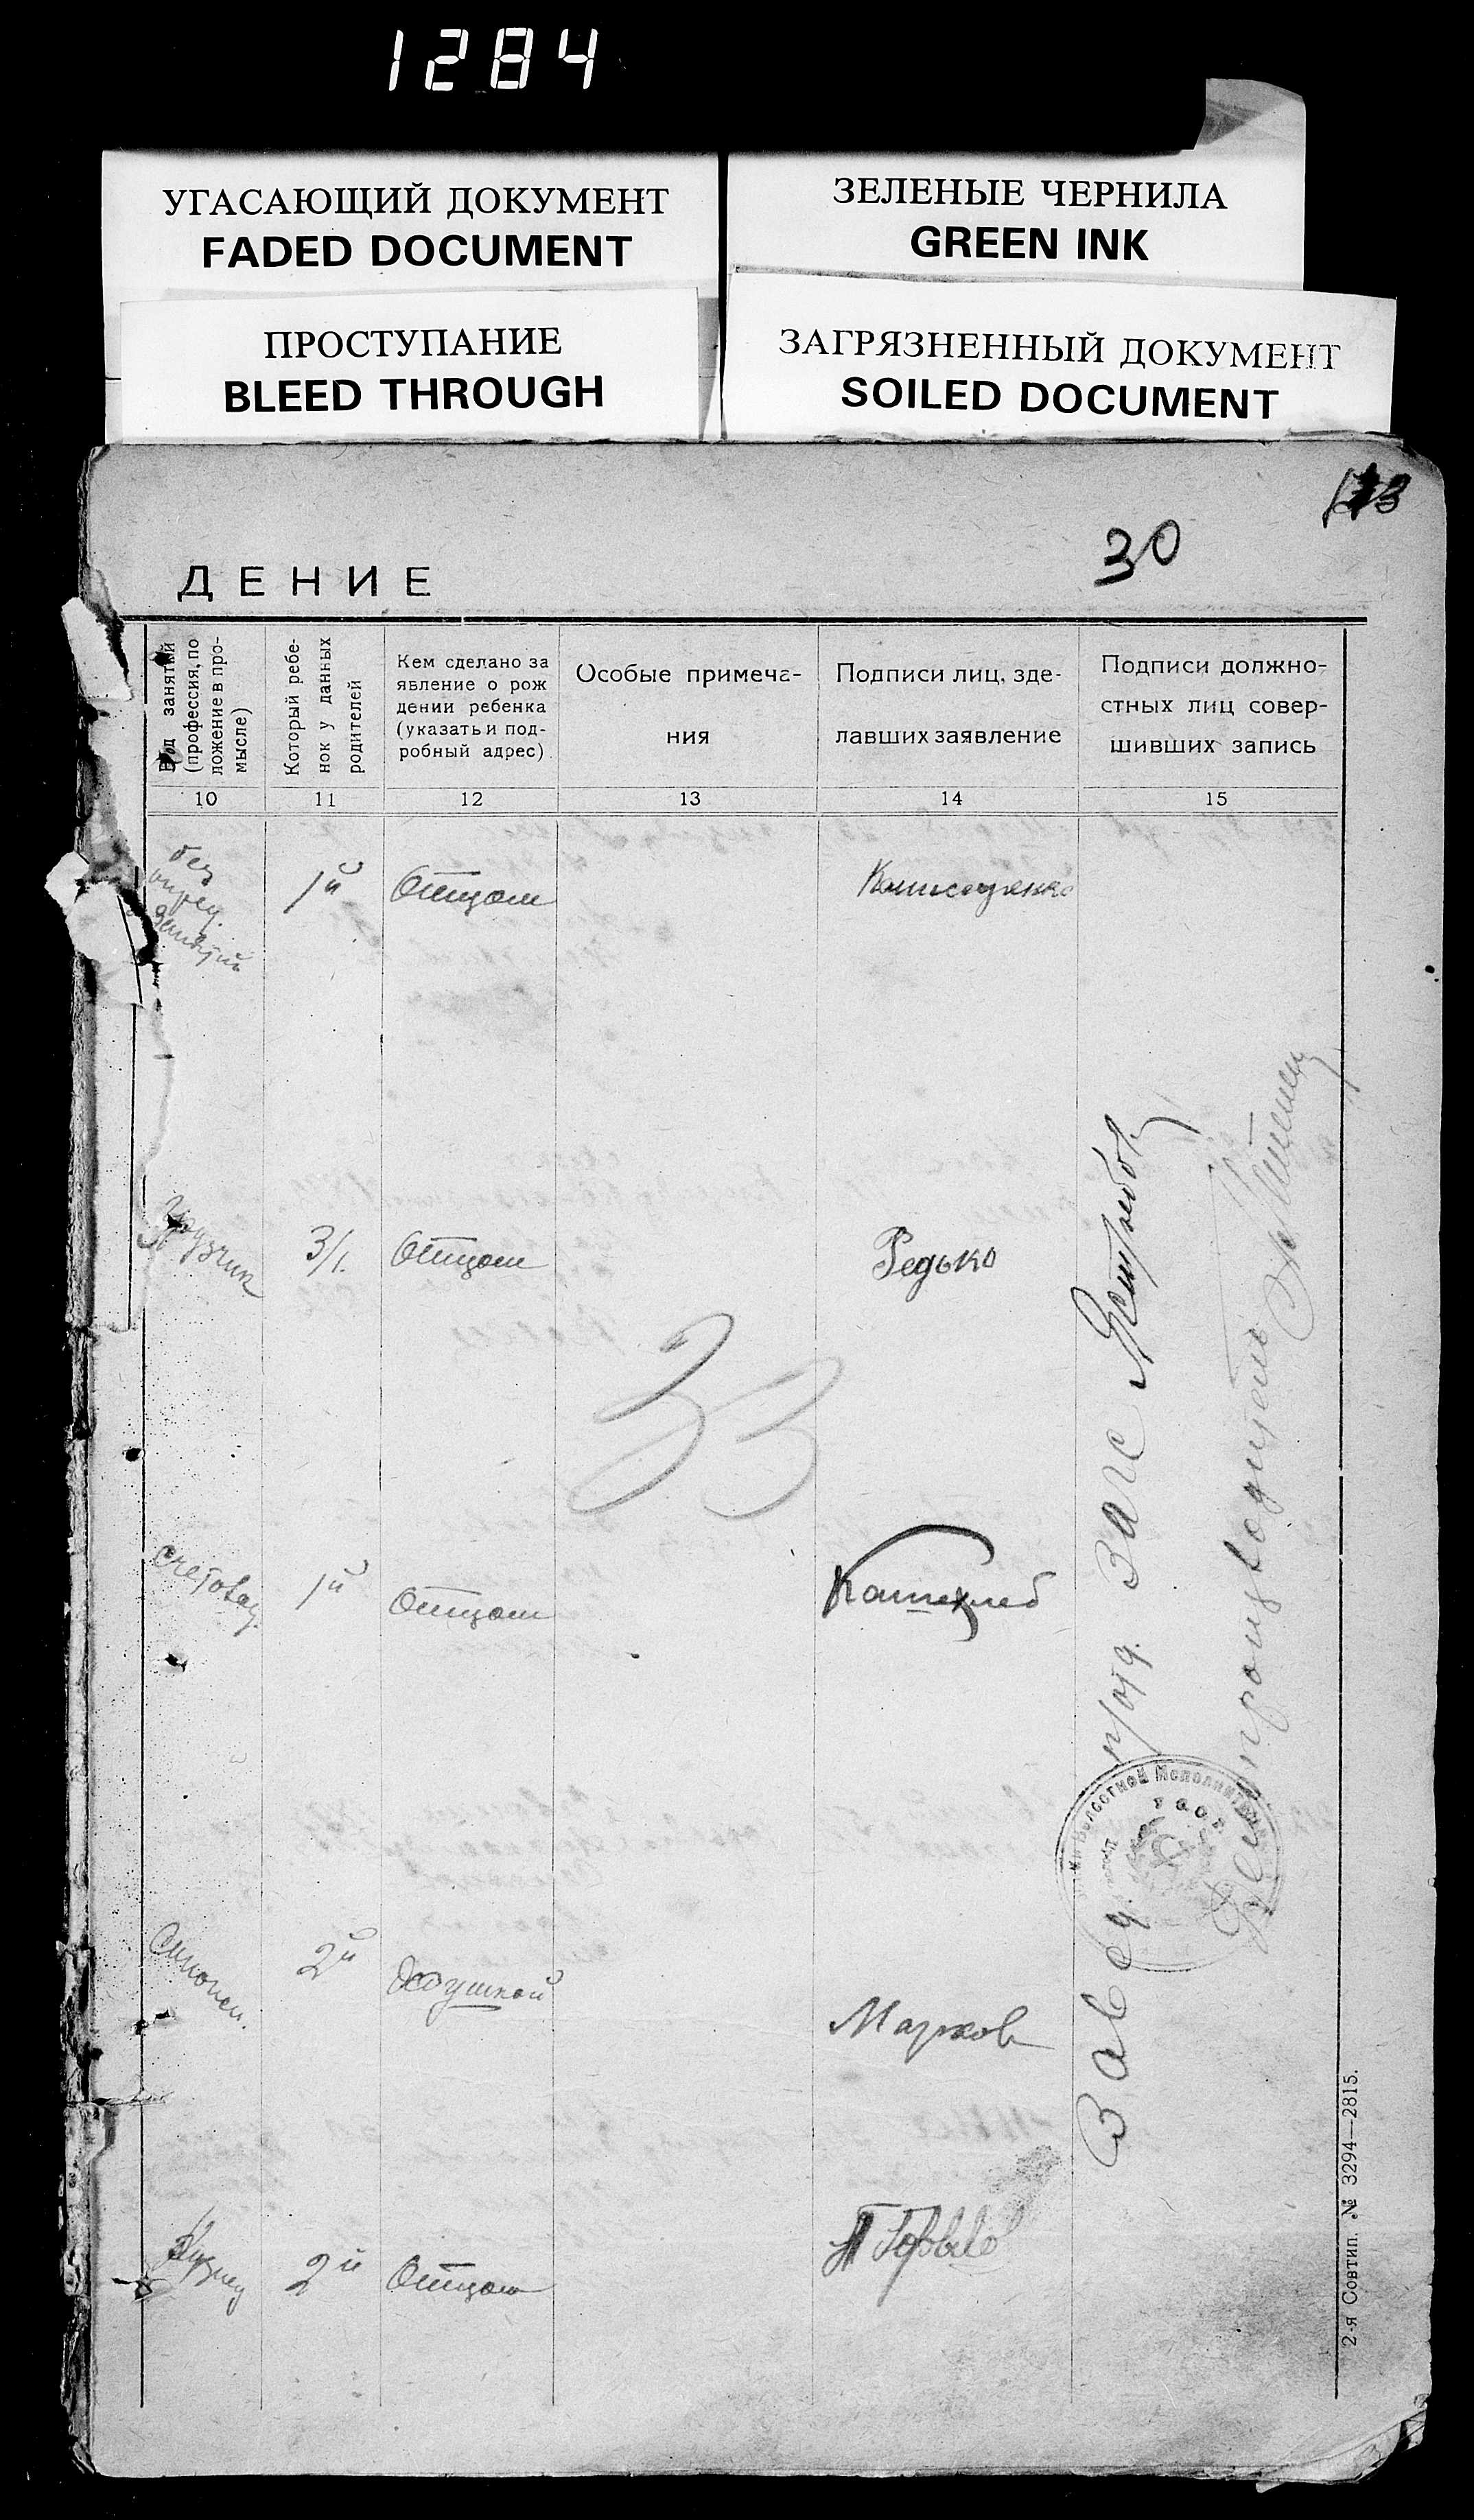 1284
УГАСАЮЩИЙ ДОКУМЕНТ
FADED DOCUMENT
ЗЕЛЕНЫЕ ЧЕРНИЛА
GREEN INK
ПРОСТУПАНИЕ
BLEED THROUGH
ЗАГРЯЗНЕННЫЙ ДОКУМЕНТ
SOILED DOCUMENT
30
ДЕНИЕ
Род занятий
(профессия, по
ложение в про-
мысле)
Который ребе-
нок у данных
родителей
Кем сделано за
явление о рож
дении ребенка
(указать и под-
робный адрес)
Особые примеча-
ния
Подписи лиц, зде-
лавших заявление
Подписи должно-
стных лиц совер-
шивших запись
10
11
12
13
14
15
без
опред.
занятий
1й
Отцом
грузчик
3/1.
Отцом
Редько
33
счетовод.
1й
Отцом
2й
Дедушкой
Марков
Кузнец
2й
Отцом
Завед. п/отд. ЗАГС Ястребов
Делопроизводитель
2-я Совтип. № 3294—2815.